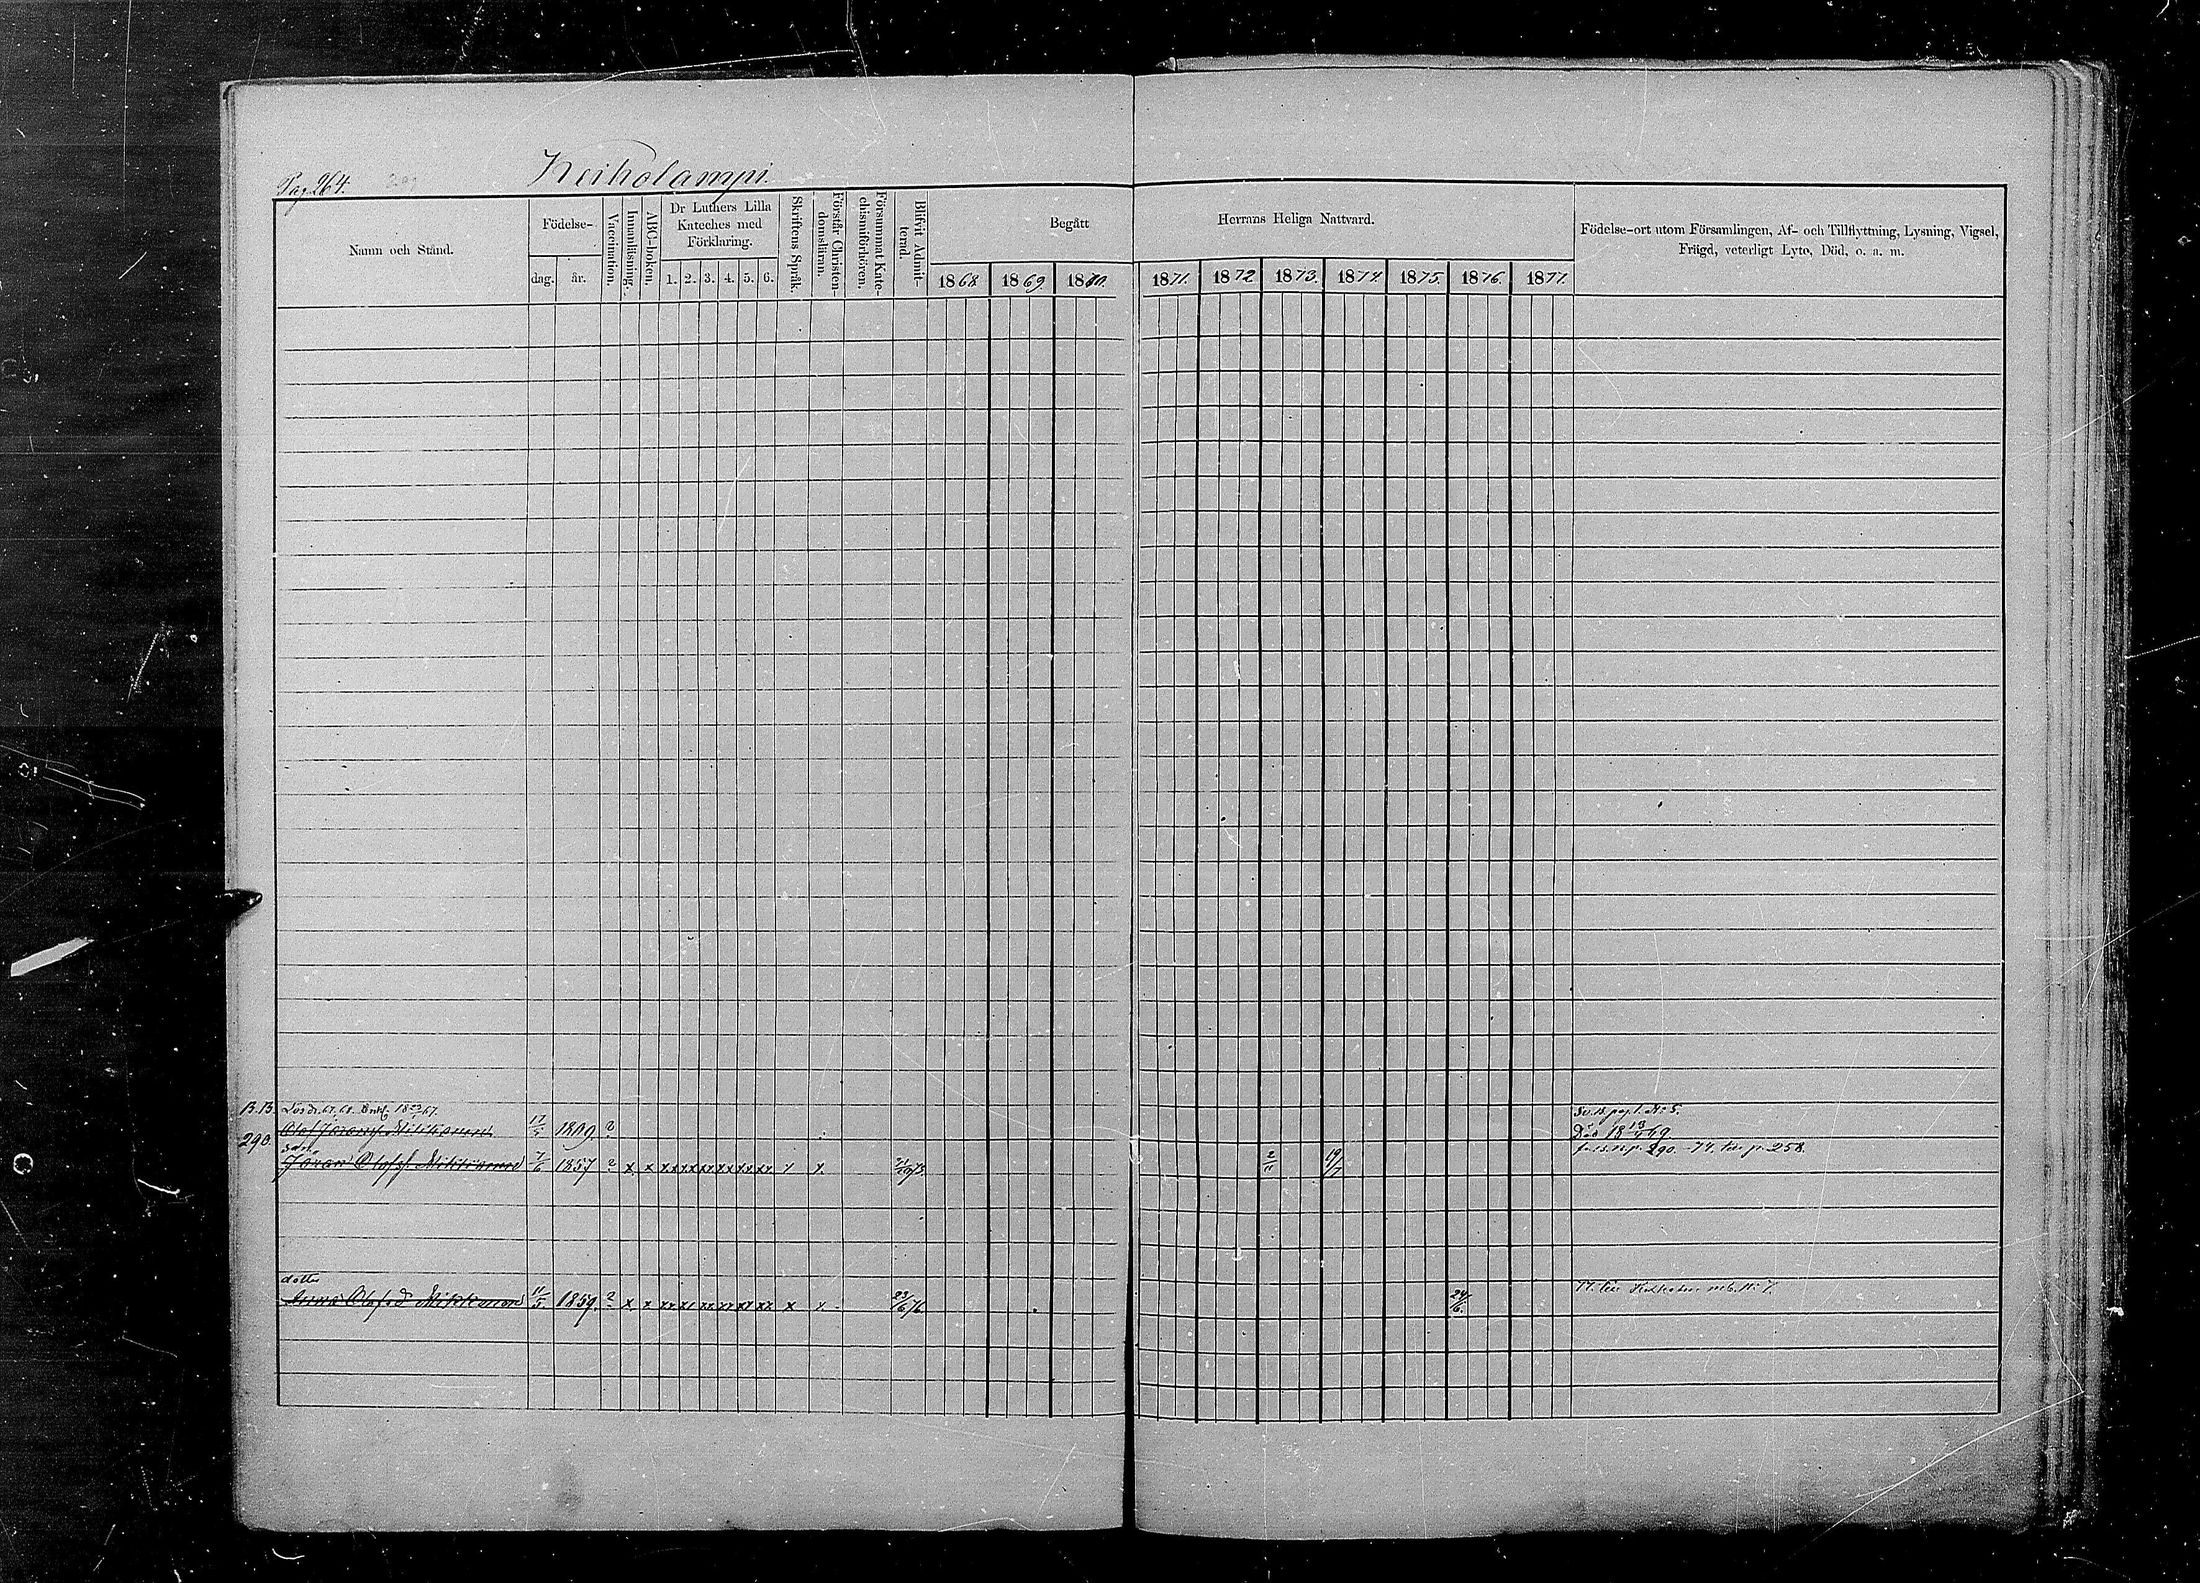 Pag 264.
Keiholampi.
Namn och Stånd.
Födelse-
dag.
år.
Vaccination.
Innanläsning.
ABC-boken.
Dr Luthers Lilla
Kateches med
Förklaring.
1. 2. 3. 4. 5. 6.
Skriftens Språk.
Förstår Christen-
domsläran.
Försummat Kate-
chismiförhören.
Blifvit Admit-
terad.
Begått
Herrans Heliga Nattvard.
1868. 1869. 1870. 1871. 1872 1873. 1874. 1875. 1876. 1877.
Födelse-ort utom Församlingen, Af- och Tillflyttning, Lysning, Vigsel,
Frägd, veterligt Lyte, Död, o. a. m.
B.B.
290
Olof Miikkonen 1809. ? Död 69
Son
Jöran Olofsf Miikkonen 7/6 1857 ? x x xx xx xx xx xx xx x x 2/11 19/7 p. 290. -74. p. 258.
dotter
Anna Olofsd Miikkonen 11/5 1859. ? x x xx xx xx xx xx xx x x 23/6 76. 24/6.